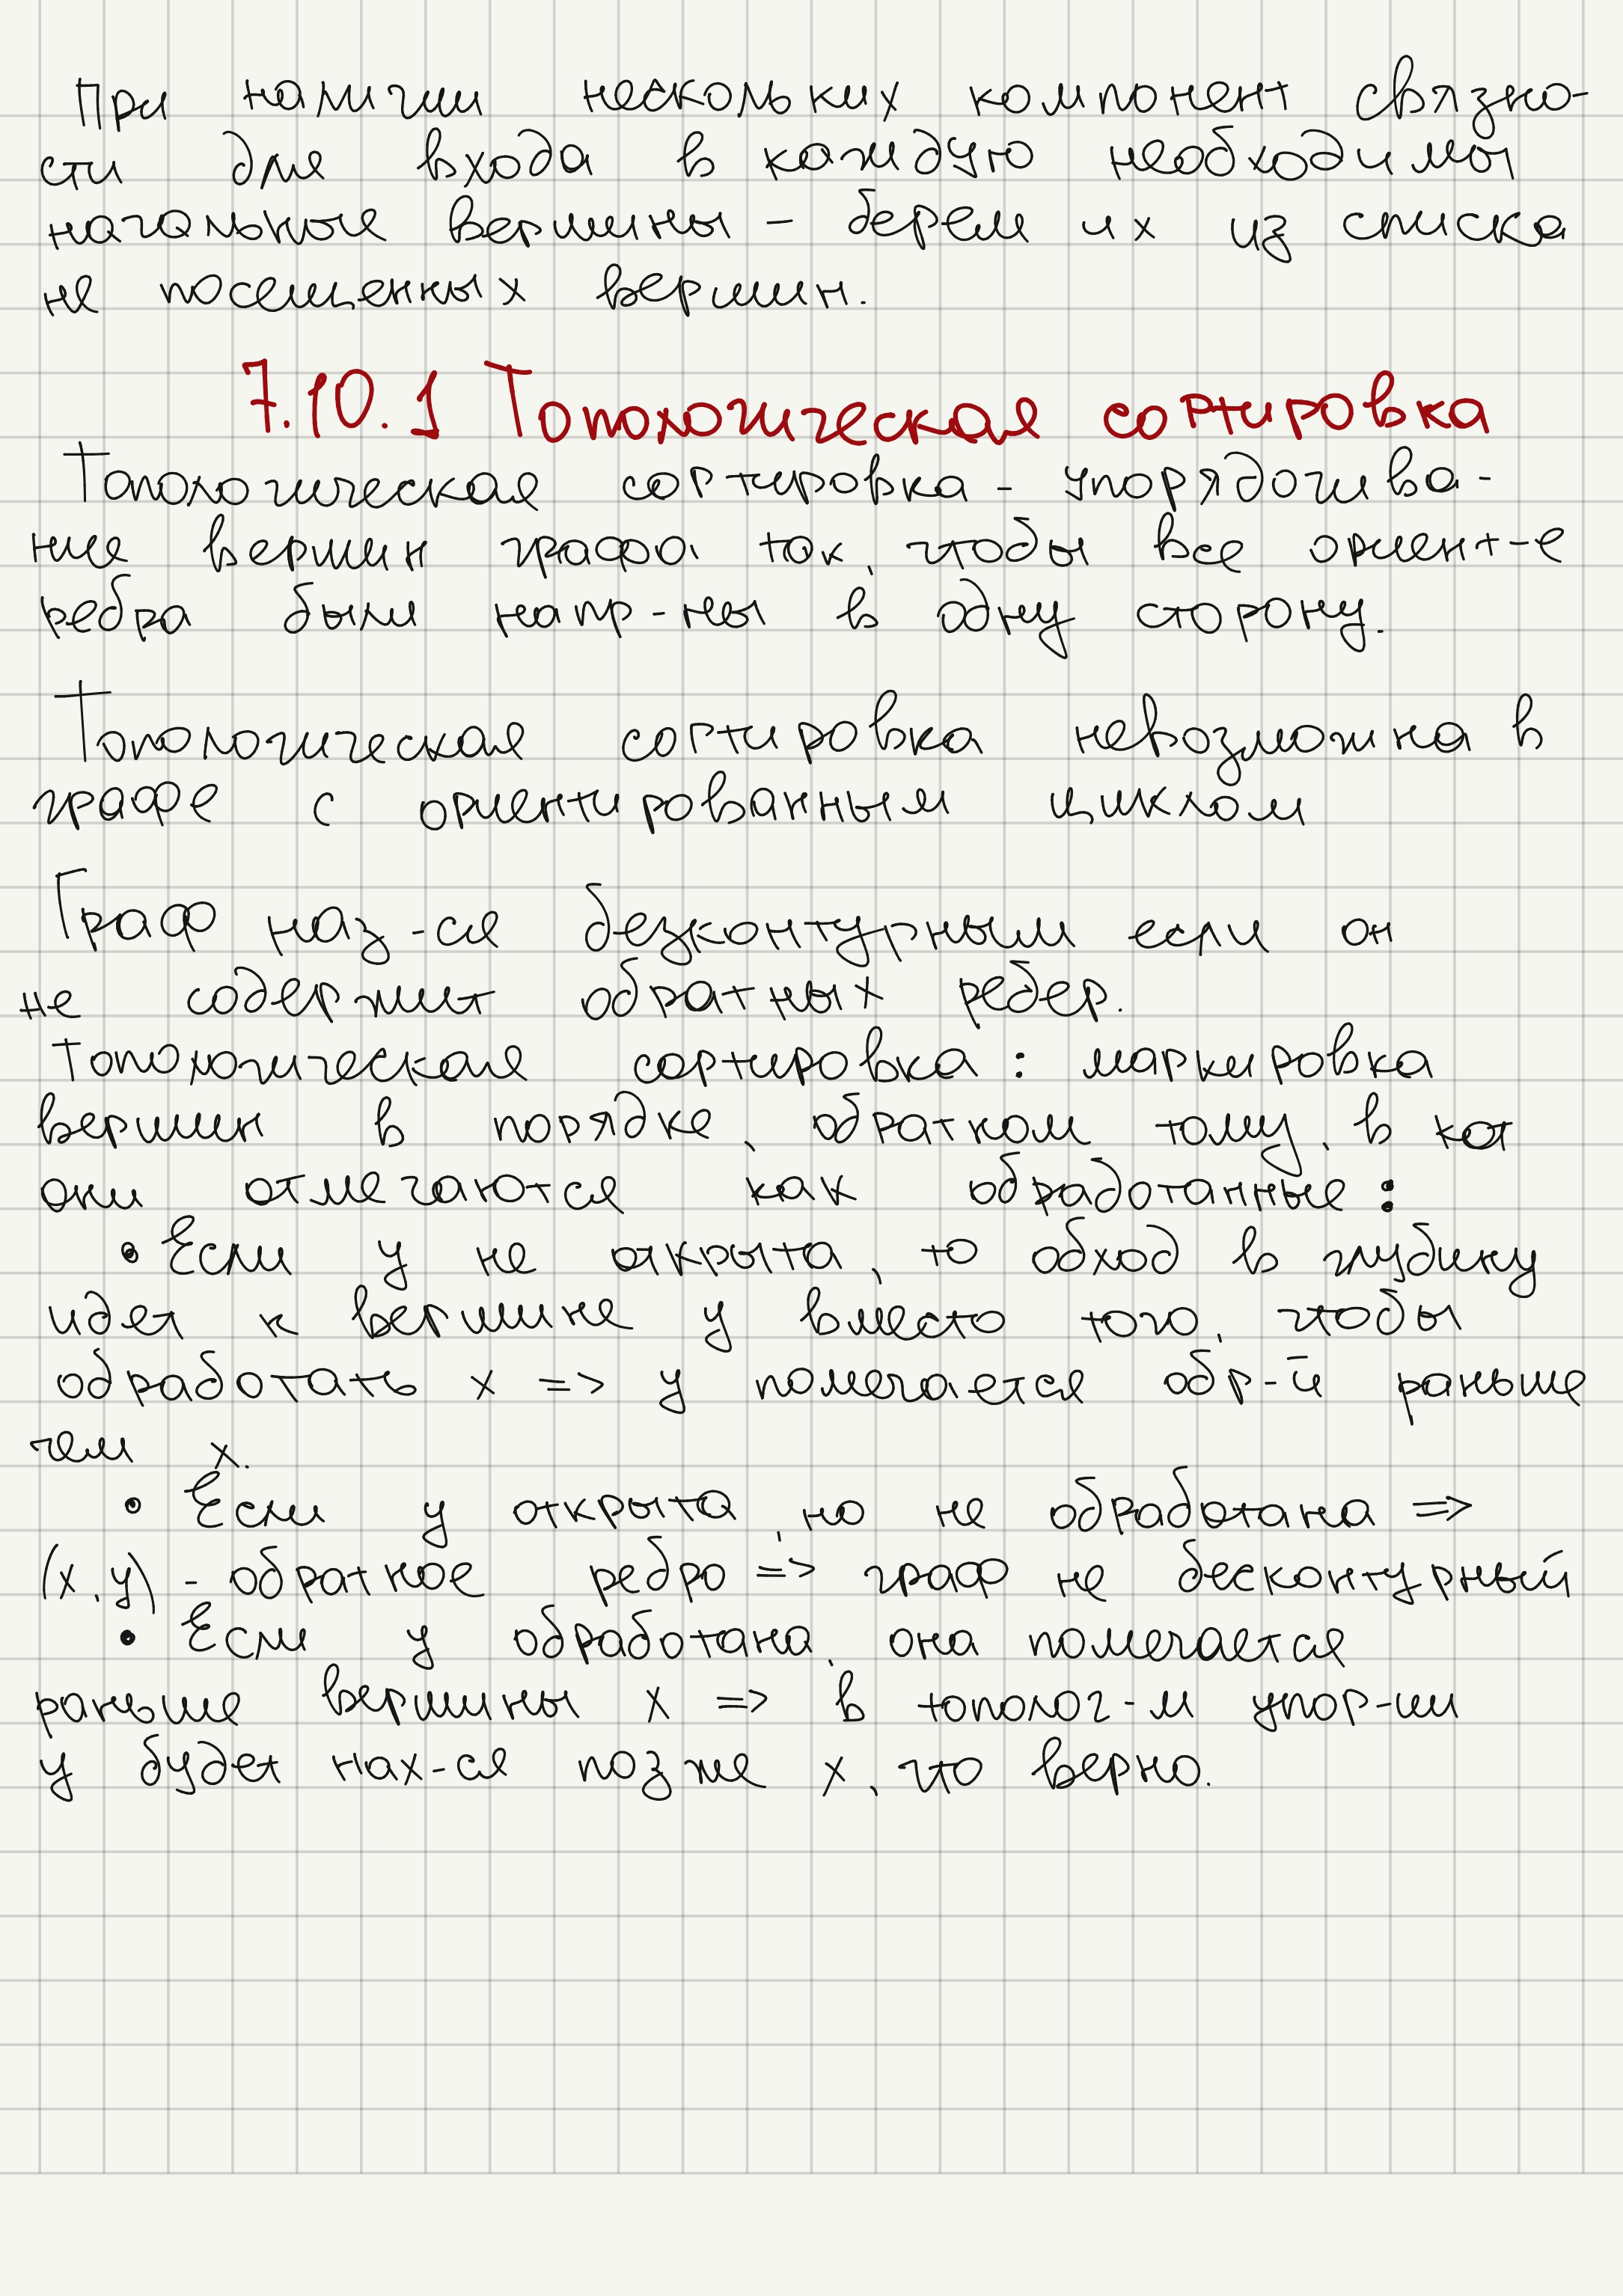 При наличии нескольких компонент связно-
сти для входа в каждую необходимы
начальные вершины - берем их из списка
не посещенных вершин.
7.10.1 Топологическая сортировка
Топологическая сортировка - упорядочива-
ние вершин графа так, чтобы все ориент-е
ребра были напр-ны в одну сторону.
Топологическая сортировка невозможна в
графе с ориентированным циклом
Граф наз-ся безконтурным если он
не содержит обратных ребер.
топологическая сортировка: маркировка
вершин в порядке, обратном тому, в кот
они отмечаются как обработанные:
• Если y не открыта, то обход в глубину
идет к вершине y вместо того, чтобы
обработать x => y помечается обр-й раньше
чем x.
• Если y открыта, но не обработана =>
(x,y) - обратное ребро => граф не бесконтурный
• Если y обработана, она помечается
раньше вершины x => в тополог-м упор-ии
y будет нах-ся позже x, что верно.